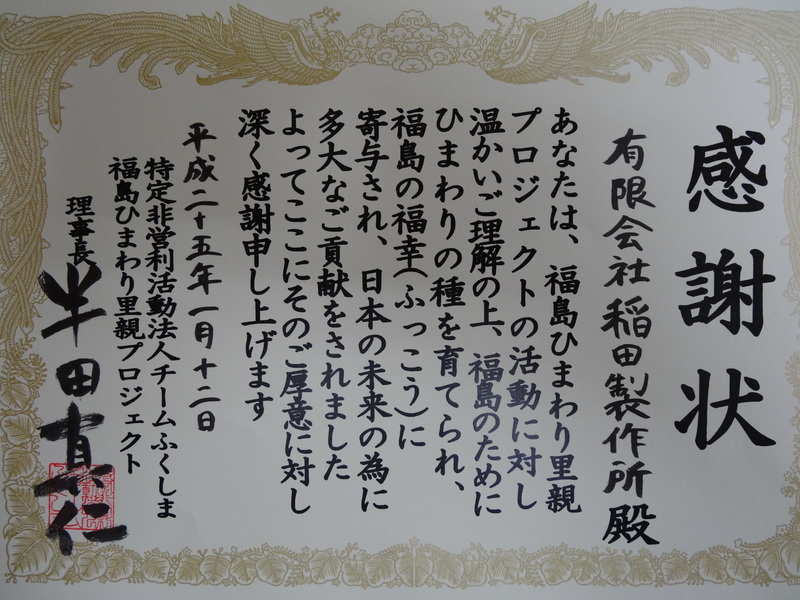 感謝状
有限会社稲田製作所殿
あなたは、福島ひまわり里親
プロジェクトの活動に対し
温かいご理解の上、福島のために
ひまわりの種を育てられ、
福島の福幸(ふっこう)に
寄与され、日本の未来の為に
多大なご貢献をされました
よってここにそのご厚意に対し
深く感謝申し上げます
平成二十五年一月十二日
特定非営利活動法人チームふくしま
福島ひまわり里親プロジェクト
理事長 半田真仁